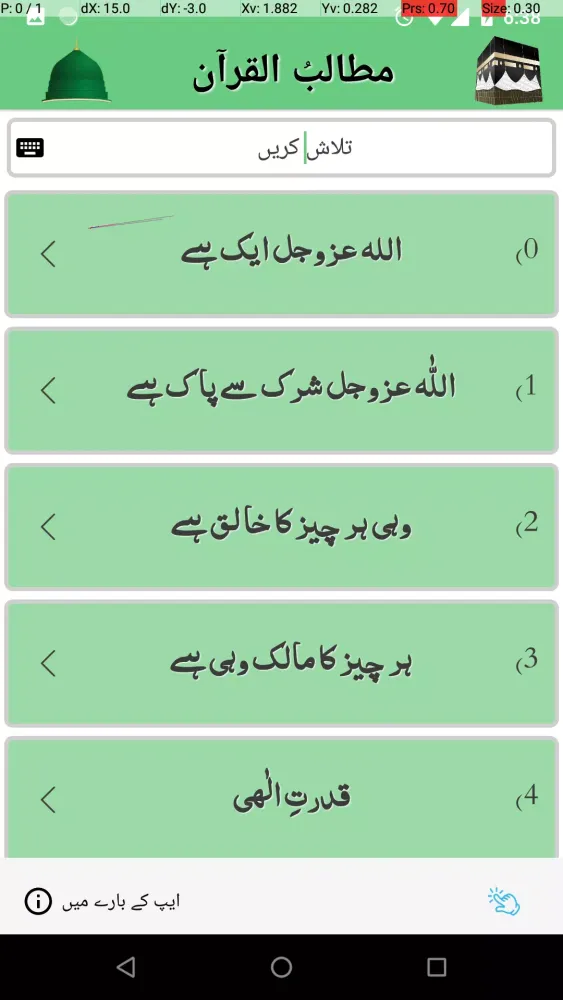 P: 0 / 1 dX: 15.0 dY: -3.0 Xv: 1.882 Yv: 0.282 Prs: 0.70 Size: 0.30
6:38
مطالبُ القرآن
تلاش کریں
0) الله عزوجل ایک ہے
1) اللّٰه عزوجل شرک سے پاک ہے
2) وہی ہر چیز کا خالق ہے
3) ہر چیز کا مالک وہی ہے
4) قدرتِ الٰهی
ایپ کے بارے میں